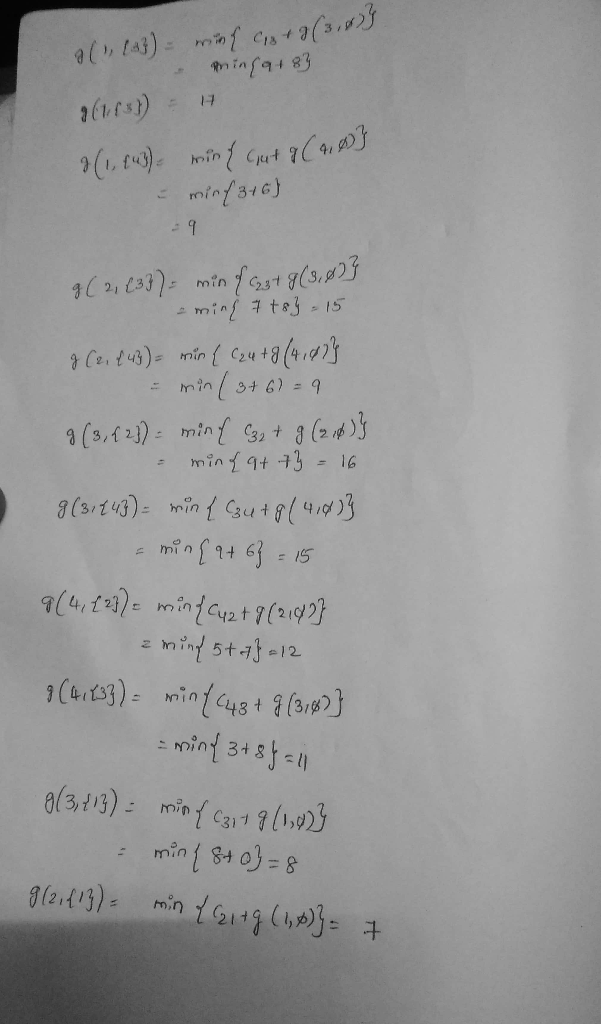 g(1, {3}) = min{ C13 + g(3,ø)}
= min{9+8}
g(1,{3}) = 17
g(1, {4}) = min{ C14+ g(4,ø)}
= min{3+6}
= 9
g(2, {3}) = min{C23+ g(3,ø)}
= min{ 7+8} = 15
g(2, {4}) = min{ C24+g(4,ø)}
= min(3+6) = 9
g(3,{2}) = min{ C32 + g(2,ø)}
= min{9+7} = 16
g(3,{4}) = min{ C34+g(4,ø)}
= min{9+6} = 15
g(4,{2}) = min{C42+g(2,ø)}
= min{5+7}=12
g(4,{3}) = min{C43+ g(3,ø)}
= min{3+8}=11
g(3,{1}) = min{C31+g(1,ø)}
= min{ 8+0}=8
g(2,{1}) = min {C21+g(1,ø)}= 7